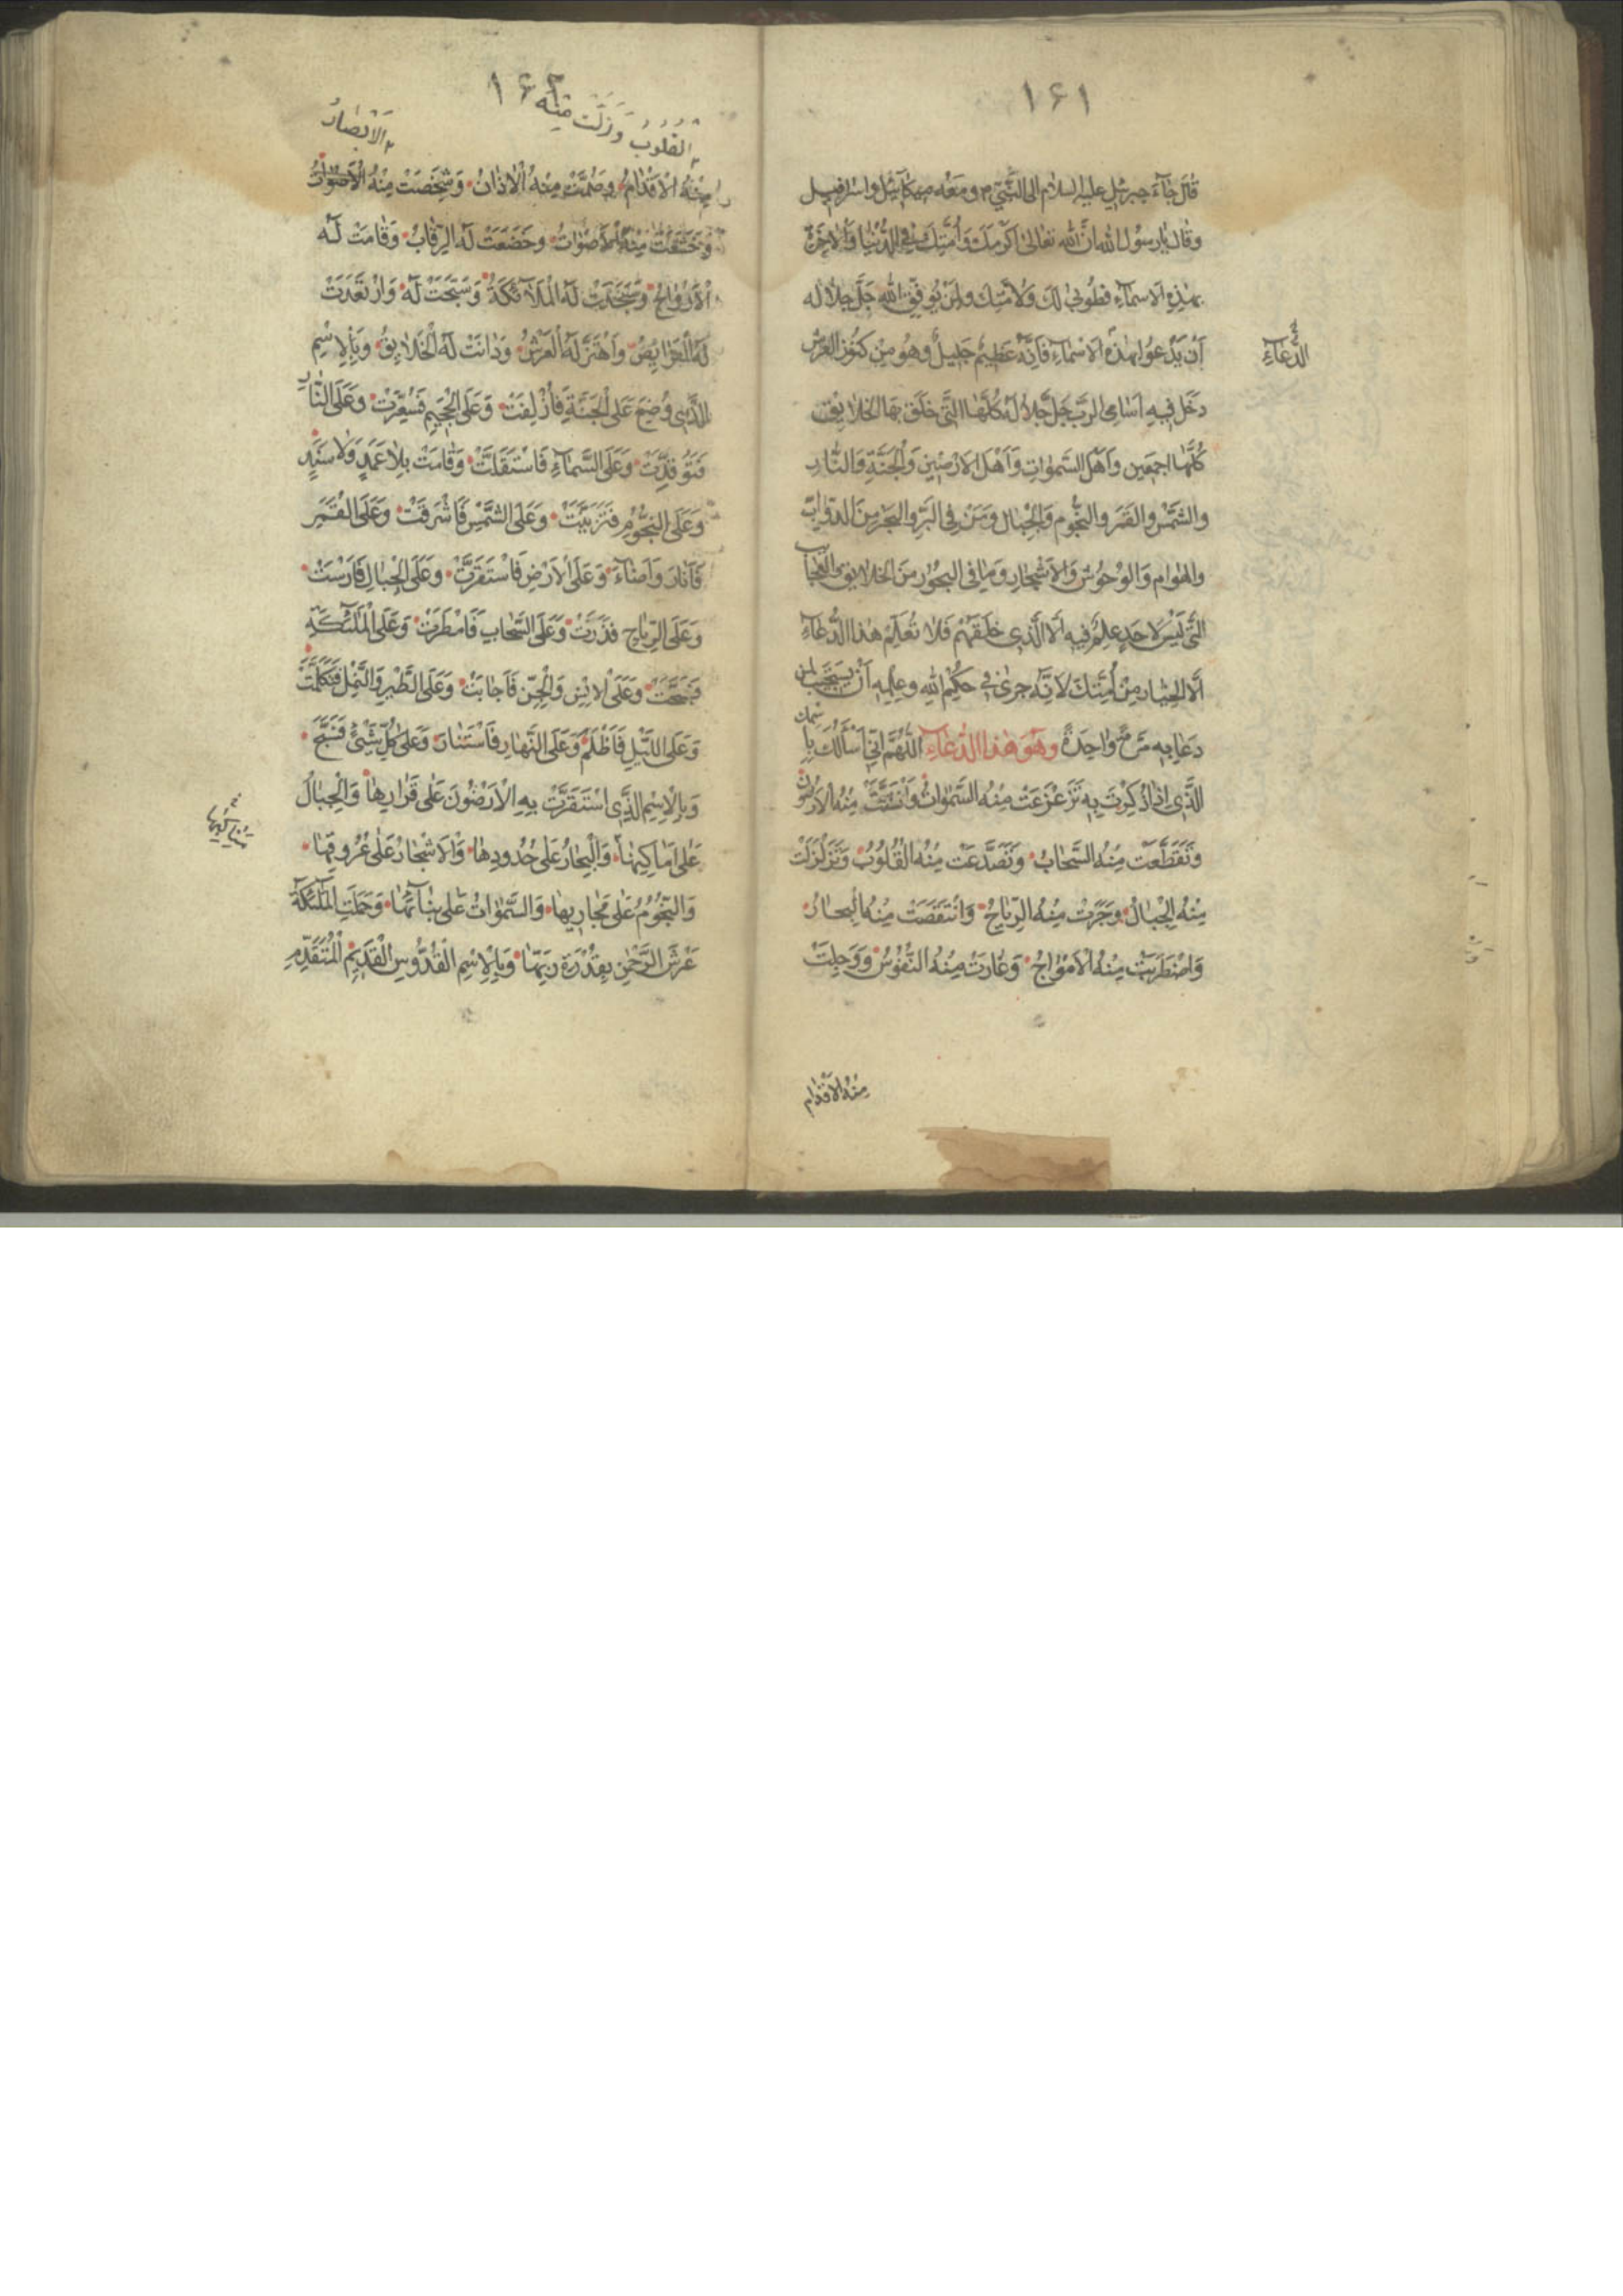 ١٦١
قال جاء جبرئيل عليه السلام الى النبي ص ومعه ميكائيل واسرافيل
وقال يا رسول الله ان الله تعالى اكرمك وامتك في الدنيا والاخرة
بهذه الاسماء فطوبى لك ولامتك ولمن يوفق الله جل جلاله
ان يدعوا بهذه الاسماء فانه عظيم جليل وهو من كنوز العرش
الدعاء
دخل فيه اسامي الرب جل جلاله كلها التي خلق بها الخلايق
كلها اجمعين واهل السموات واهل الارضين والجنة والنار
والشمس والقمر والنجوم والجبال ومن في البر والبحر من الدواب
والهوام والوحوش والاشجار وما في البحور من الخلايق والعجايب
التي ليس لاحد علم فيه الا الذي خلقهم فلا تعلم هذا الدعاء
الا لخيار من امتك لانه جرى في حكم الله وعلمه ان يستجب لمن
دعا به مرة واحدة وهو هذا الدعاء اللهم اني اسالك با
سمك
الَّذى اذا ذُكِرْتَ بِهِ تَزَعْزَعَتْ مِنْهُ السَّمٰواتُ وَانْشَقَّتْ مِنْهُ الاَرَضُونَ
وَتَقَطَّعَتْ مِنْهُ السَّحابُ وَتَصَدَّعَتْ مِنْهُ القُلُوبُ وَتَزَلْزَلَتْ
مِنْهُ الجِبالُ وجَرَتْ مِنْهُ الرِّياحُ وَانْتَقَصَتْ مِنْهُ الْبِحارُ
وَاضْطَرَبَتْ مِنْهُ الاَمْواجُ وَغارَتْ مِنْهُ النُّفُوسُ وَوَجِلَتْ
منه الاقدام
١٦٢
القلوب وزلت منه
الابصار
مِنْهُ الاَقْدامُ وصُمَّتْ مِنْهُ الْاذانُ وَشَخَصَتْ مِنْهُ الاَصْواتُ
وخَشَعَتْ مِنْهُ الاَصْواتُ وخَضَعَتْ لَهُ الرِّقابُ وَقامَتْ لَهُ
الْاَرْواحُ وَسَجَدَتْ لَهُ الْمَلائكَةُ وَسَبَّحَتْ لَهُ وَارْتَعَدَتْ
لَهُ الْفَرايِصُ واَهْتَزَّ لَهُ الْعَرْشُ وَدانَتْ لَهُ الْخَلايِقُ وَبِالاِسْمِ
الَّذى وُضِعَ عَلَى الْجَنَّةِ فَأُزْلِفَتْ وَعَلَى الْجَحيمِ فَسُعِّرَتْ وَعَلَى النّارِ
فَتَوَقَّدَتْ وَعَلَى السَّماءِ فَاسْتَقَلَّتْ وَقامَتْ بِلاعَمَدٍ وَلا سَنَدٍ
وَعَلَى النُّجُومِ فَتَزَيَّنَتْ وَعَلَى الشَّمْسِ فَاَشْرَقَتْ وَعَلَى الْقَمَرِ
فَاَنارَ وَاَضاءَ وَعَلَى الاَرْضِ فَاسْتَقَرَّتْ وعَلَى الْجِبالِ فَاَرْسَتْ
وَعَلَى الرِّياحِ فَذَرَتْ وَعَلَى السَّحابِ فَاَمْطَرَتْ وَعَلَى الْمَلئكَةِ
فَسَبَّحَتْ وَعَلَى الْاِنْسِ وَالْجِنِّ فَاَجابَتْ وَعَلَى الطَّيْرِ وَالنَّمْلِ فَتَكَلَّمَتْ
وَعَلَى اللَّيْلِ فَاَظْلَمَ وَعَلَى النَّهارِ فَاسْتَنارَ وَعَلى كُلِّ شَيْءٍ فَسَبَّحَ
وَبِالْاِسْمِ الَّذى اسْتَقَرَّتْ بِهِ الْاَرَضُونَ عَلى قَرارِها وَالْجِبالُ
عَلى اَماكِنِها وَالْبِحارُ عَلى حُدُودِها وَالاَشْجارُ عَلى عُرُوقِها
وَالنُّجُومُ عَلى مَجارِيها وَالسَّمٰواتُ عَلى بِنائِها وَحَمَلَتِ الْمَلئكَةُ
عَرْشَ الرَّحْمٰنِ بِقُدْرَةِ رَبِّها وَبِالْاِسْمِ الْقُدُّوسِ الْقَديمِ الْمُتَقَدِّمِ